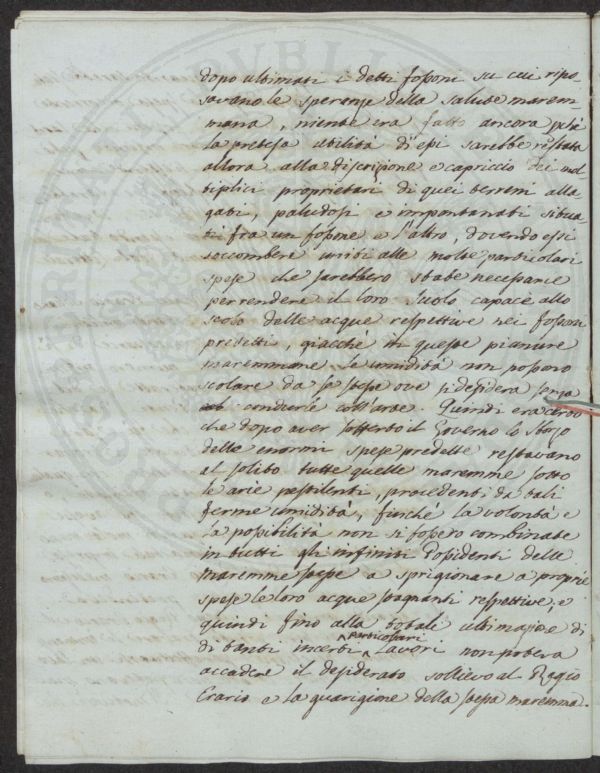 dopo ultimati i detti fossoni su cui ripo
savano le speranze della salute marem
mana, niente era fatto ancora perchè
la pretesa utilità di essi sarebbe restata
allora alla discrizione e capriccio dei mol
tiplici proprietari di quei terreni alla
gati, paludosi e impantanati situa
ti fra un fossone e l'altro, dovendo essi
soccombere uniti alle molte particolari
spese che sarebbero state necessarie
per rendere il loro suolo capace allo
scolo delle acque respettive nei fossoni
predetti, giacchè in queste pianure
maremmane le umidità non possono
scolare da se stesse ove si desidera senza
condurle coll'arte. Quindi era certo
che dopo aver sofferto il Governo lo sforzo
delle enormi spese predette restavano
al solito tutte quelle maremme sotto
le arie pestilenti, procedenti da tali
ferme umidità, finchè la volontà e
la possibilità non si fossero combinate
in tutti gli infiniti Possidenti delle
maremme stesse a sprigionare a proprie
spese le loro acque stagnanti respettive; e
quindi fino alla totale ultimazione di
di tanti incerti particolari lavori non poteva
accadere il desiderato sollievo al Reggio
Erario e la guarigione della stessa maremma.